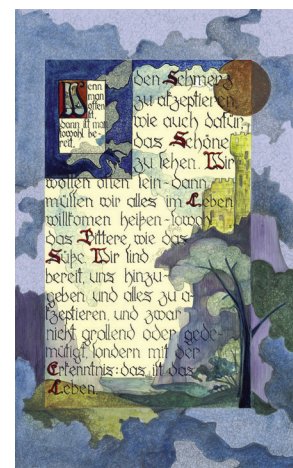 Wenn
man
offen
ist,
dann ist man
sowohl be-
reit,
den Schmerz
zu akzeptieren
wie auch dafür,
das Schöne
zu sehen. Wir
wollen offen sein-dann
müssen wir alles im Leben
willkomen heißen-sowohl
das Bittere, wie das
Süße. Wir sind
bereit, uns hinzu-
geben und alles zu a-
kzeptieren, und zwar
nicht grollend oder gede-
mütigt, sondern mit der
Erkenntnis: das ist das
Leben.